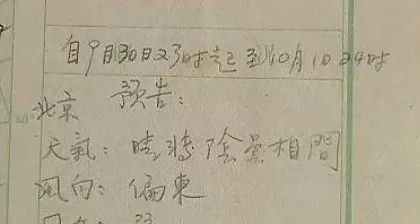 自9月30日23时起至10月1日24时
北京 预告:
天氣: 晴轉陰曇相間
风向: 偏東